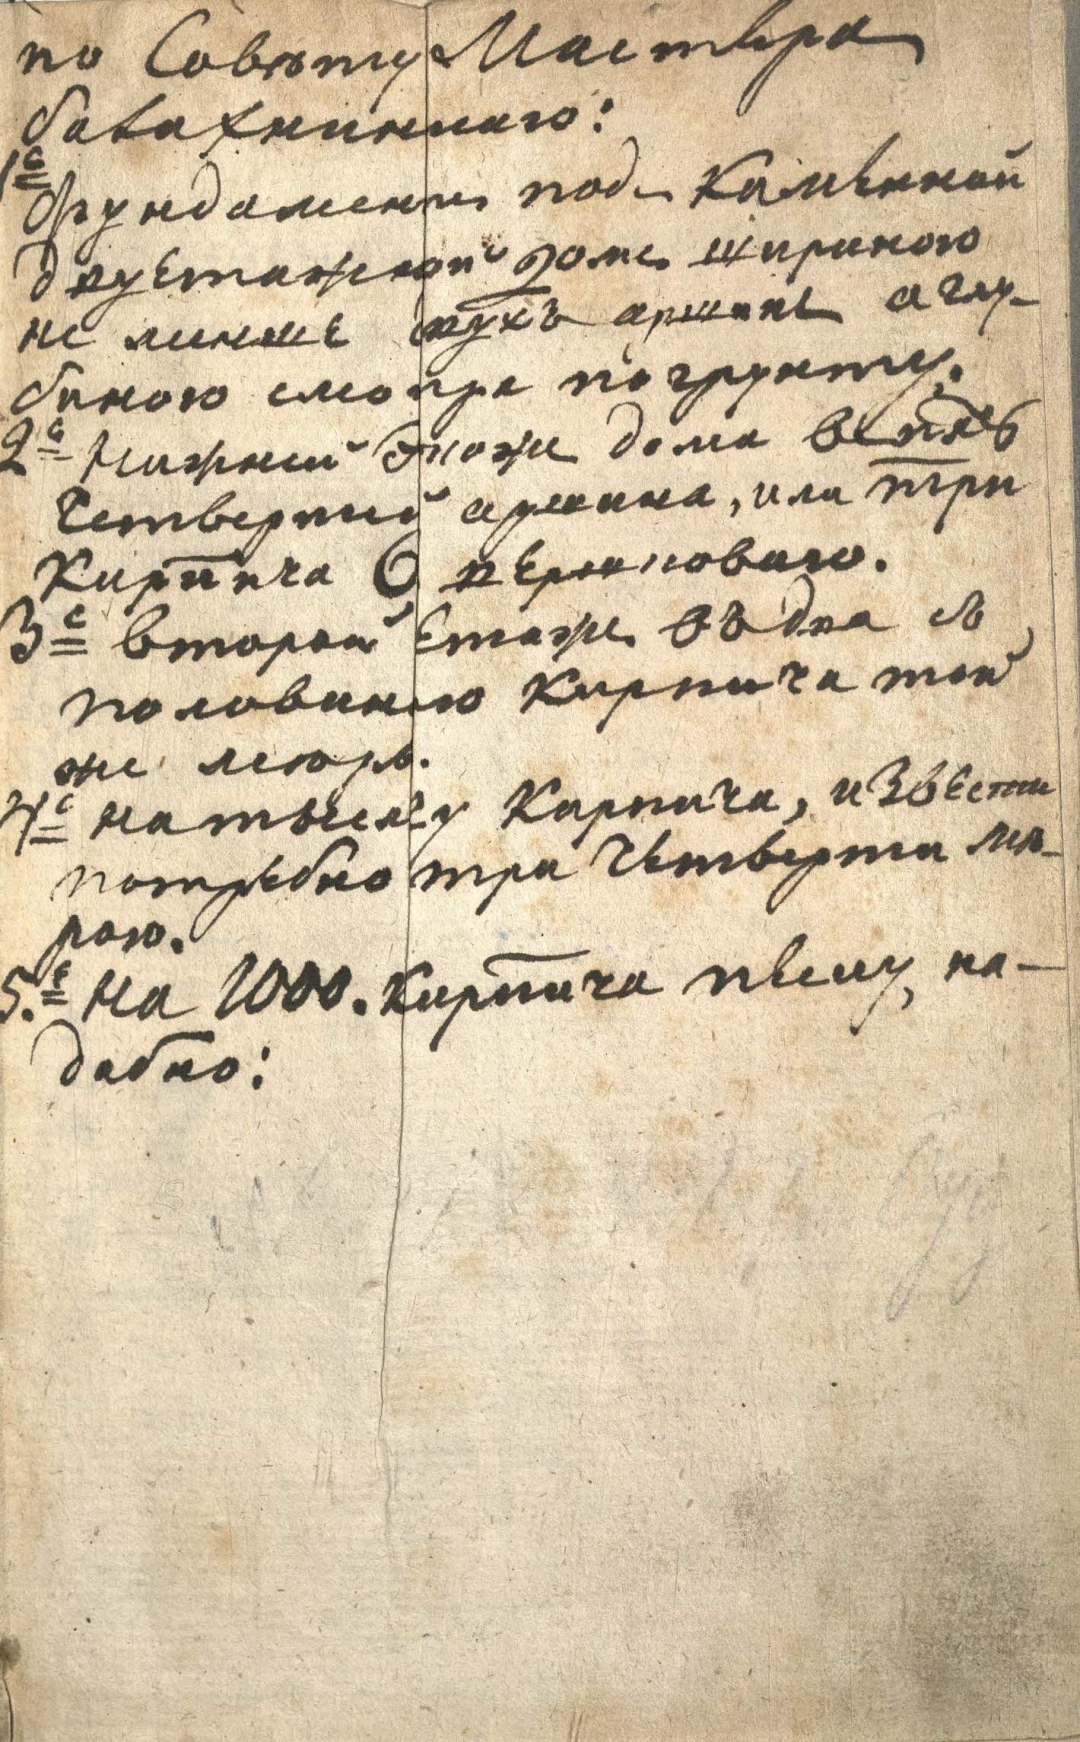 по Совѣту Мастера
балахнинскаго:
1е
Фундаментъ подъ каменной
двуетажной домъ шириною
не менше двухъ аршинъ а глу-
биною смотря по грунту.
2е Нижний Этажъ дома въ пять
четвертий аршина, или три
Кирпича 6 вершковаго.
3е второй Етажъ въ два съ
половиною Кирпича той
же меюрь.
4е на тысечу Кирпича, извести
потребно три четверти мѣ-
рою.
5.е На 1000. кирпича песку на-
добно: